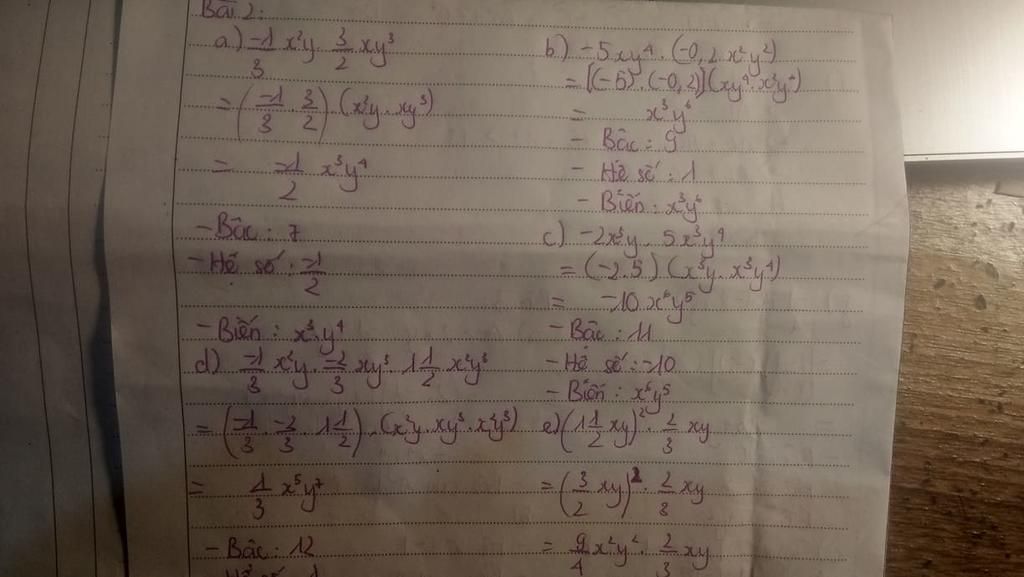 Bài 2:
a) -1/3 x²y . 3/2 xy³
= (-1/3 . 3/2) . (x²y . xy³)
= -1/2 x³y⁴
- Bậc : 7
- Hệ số : -1/2
- Biến : x³y⁴
d) -1/3 x²y . -2/3 xy³ . 1 1/2 x²y³
= (-1/3 . -2/3 . 1 1/2) . (x²y . xy³ . x²y³)
= 1/3 x⁵y⁷
- Bậc : 12
b) -5xy⁴ . (-0,2x²y²)
= [(-5) . (-0,2)] (xy⁴ . x²y²)
= x³y⁶
- Bậc : 9
- Hệ số : 1
- Biến : x³y⁶
c) -2x³y . 5x³y⁴
= (-2.5) (x³y . x³y⁴)
= -10x⁶y⁵
- Bậc : 11
- Hệ số : -10
- Biến : x⁶y⁵
e) (1 1/2 xy)² . 2/3 xy
= (3/2 xy)² . 2/3 xy
= 9/4 x²y² . 2/3 xy